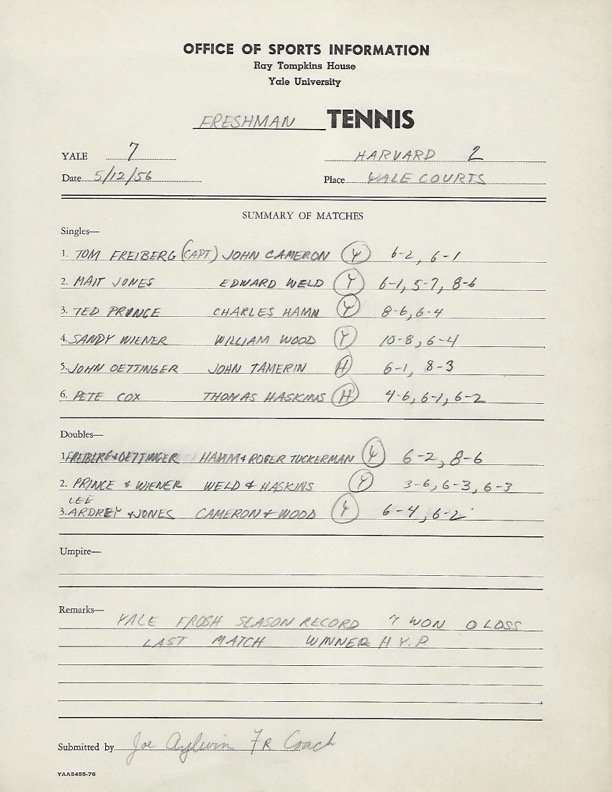 OFFICE OF SPORTS INFORMATION
Ray Tompkins House
Yale University
FRESHMAN TENNIS
YALE 7 HARVARD 2
Date 5/12/56 Place YALE COURTS
SUMMARY OF MATCHES
Singles—
1. TOM FREIBERG (CAPT) JOHN CAMERON Y 6-2, 6-1
2. MAIT JONES EDWARD WELD Y 6-1, 5-7, 8-6
3. TED PRINCE CHARLES HAMM Y 8-6, 6-4
4. SANDY WIENER WILLIAM WOOD Y 10-8, 6-4
5. JOHN OETTINGER JOHN TAMERIN H 6-1, 8-3
6. PETE COX THOMAS HASKINS H 4-6, 6-1, 6-2
Doubles—
1. FREIBERG & OETTINGER HAMM & ROGER TUCKERMAN Y 6-2, 8-6
2. PRINCE & WIENER WELD & HASKINS Y 3-6, 6-3, 6-3
LEE
3. ARDREY & JONES CAMERON & WOOD Y 6-4, 6-2
Umpire—
Remarks— YALE FROSH SEASON RECORD 7 WON 0 LOSS
LAST MATCH WINNER H.Y.P.
Submitted by Joe Aylwin FR Coach
YAA5455-76